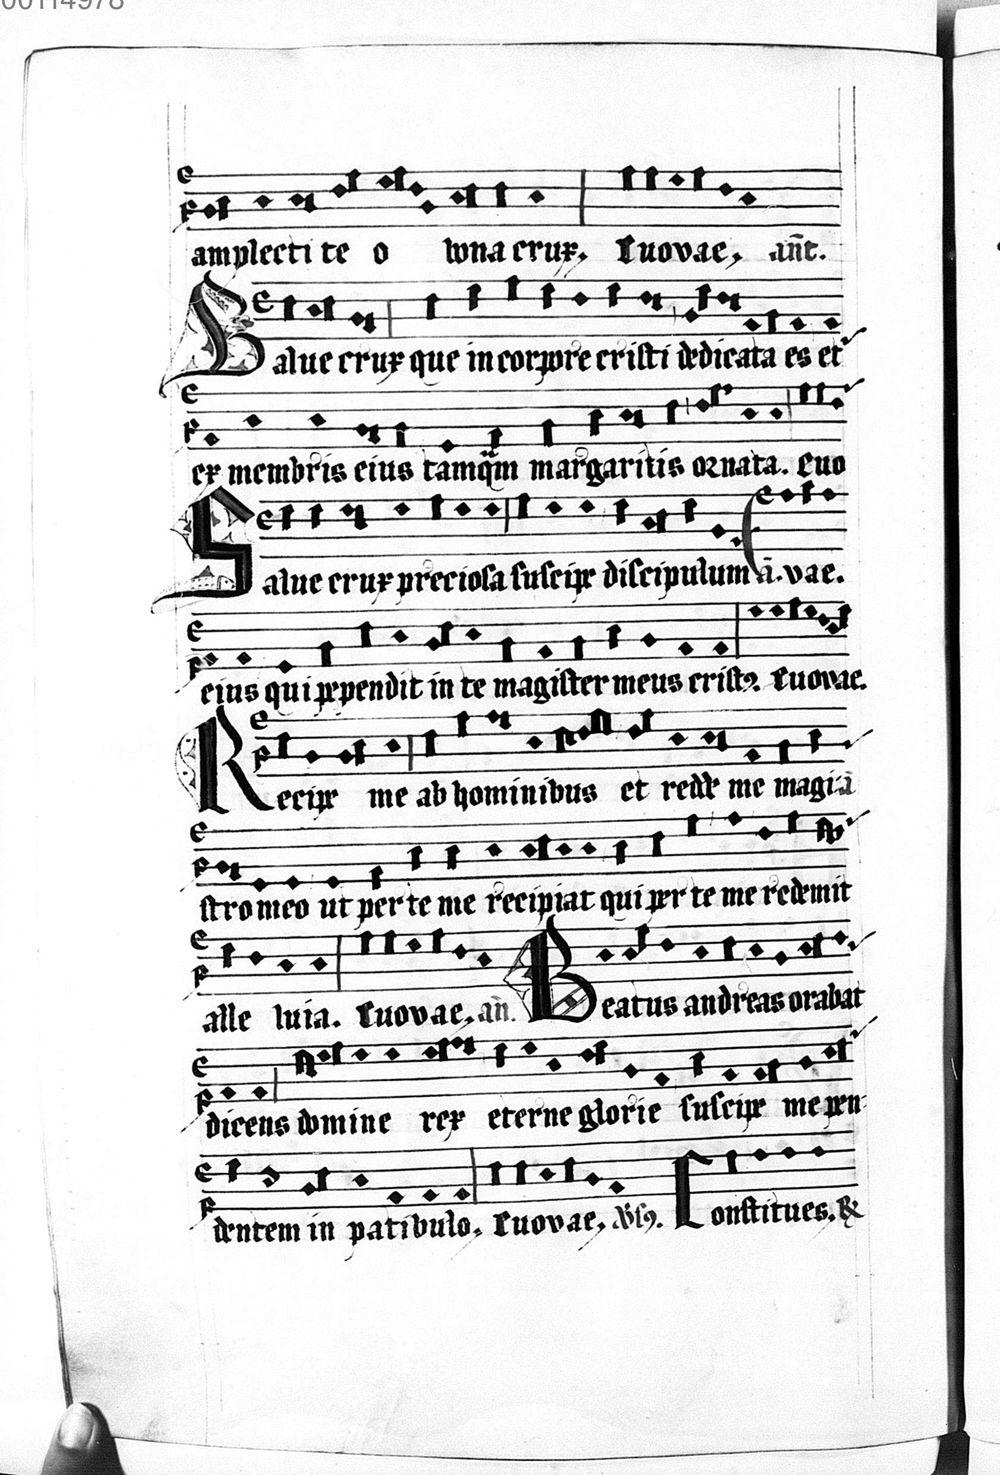 00114978
amplecti te o bona crux. Euovae, añt.
Salue crux que in corpore cristi dedicata es et
ex membris eius tamq̃m margaritis ornata. Euo
Salue crux preciosa suscipe discipulum ã. vae.
eius qui pependit in te magister meus cristꝰ. Euovae.
Recipe me ab hominibus et redde me magi ã
stro meo ut per te me recipiat qui per te me redemit
alle luia. Euovae, añ. Beatus andreas orabat
dicens domine rex eterne glorie suscipe me pen
dentem in patibulo. Euovae, v̄sꝰ. Constitues. &